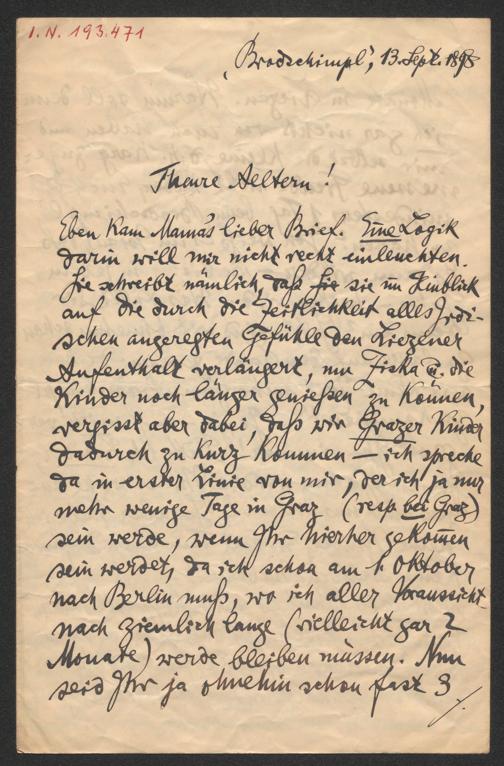 I.N. 193.471
„Brodschimpl“, 13. Sept. 1898
Theure Aeltern!
Eben kam Mama's lieber Brief. Eine Logik
darin will mir nicht recht einleuchten.
Sie schreibt nämlich, daß sie im Hinblick
auf die durch die Zeitlichkeit alles Irdi-
schen angeregten Gefühle den Liezener
Aufenthalt verlängert, um Ziska u. die
Kinder noch länger genießen zu können,
vergisst aber dabei, daß wir Grazer Kinder
dadurch zu kurz kommen – ich spreche
da in erster Linie von mir, der ich ja nur
mehr wenige Tage in Graz (resp bei Graz)
sein werde, wenn Ihr hierher gekommen
sein werdet, da ich schon am 1. Oktober
nach Berlin muß, wo ich aller Voraussicht
nach ziemlich lange (vielleicht gar 2
Monate) werde bleiben müssen. Nun
seid Ihr ja ohnehin schon fast 3